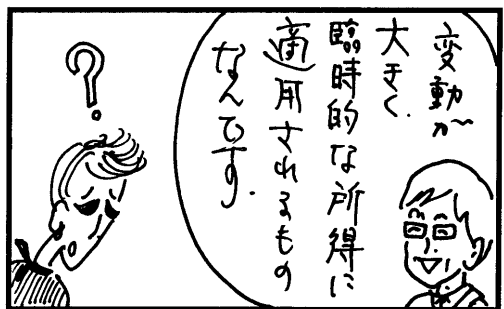 変動が
大きく、
臨時的な所得に
適用されるもの
なんです。
?